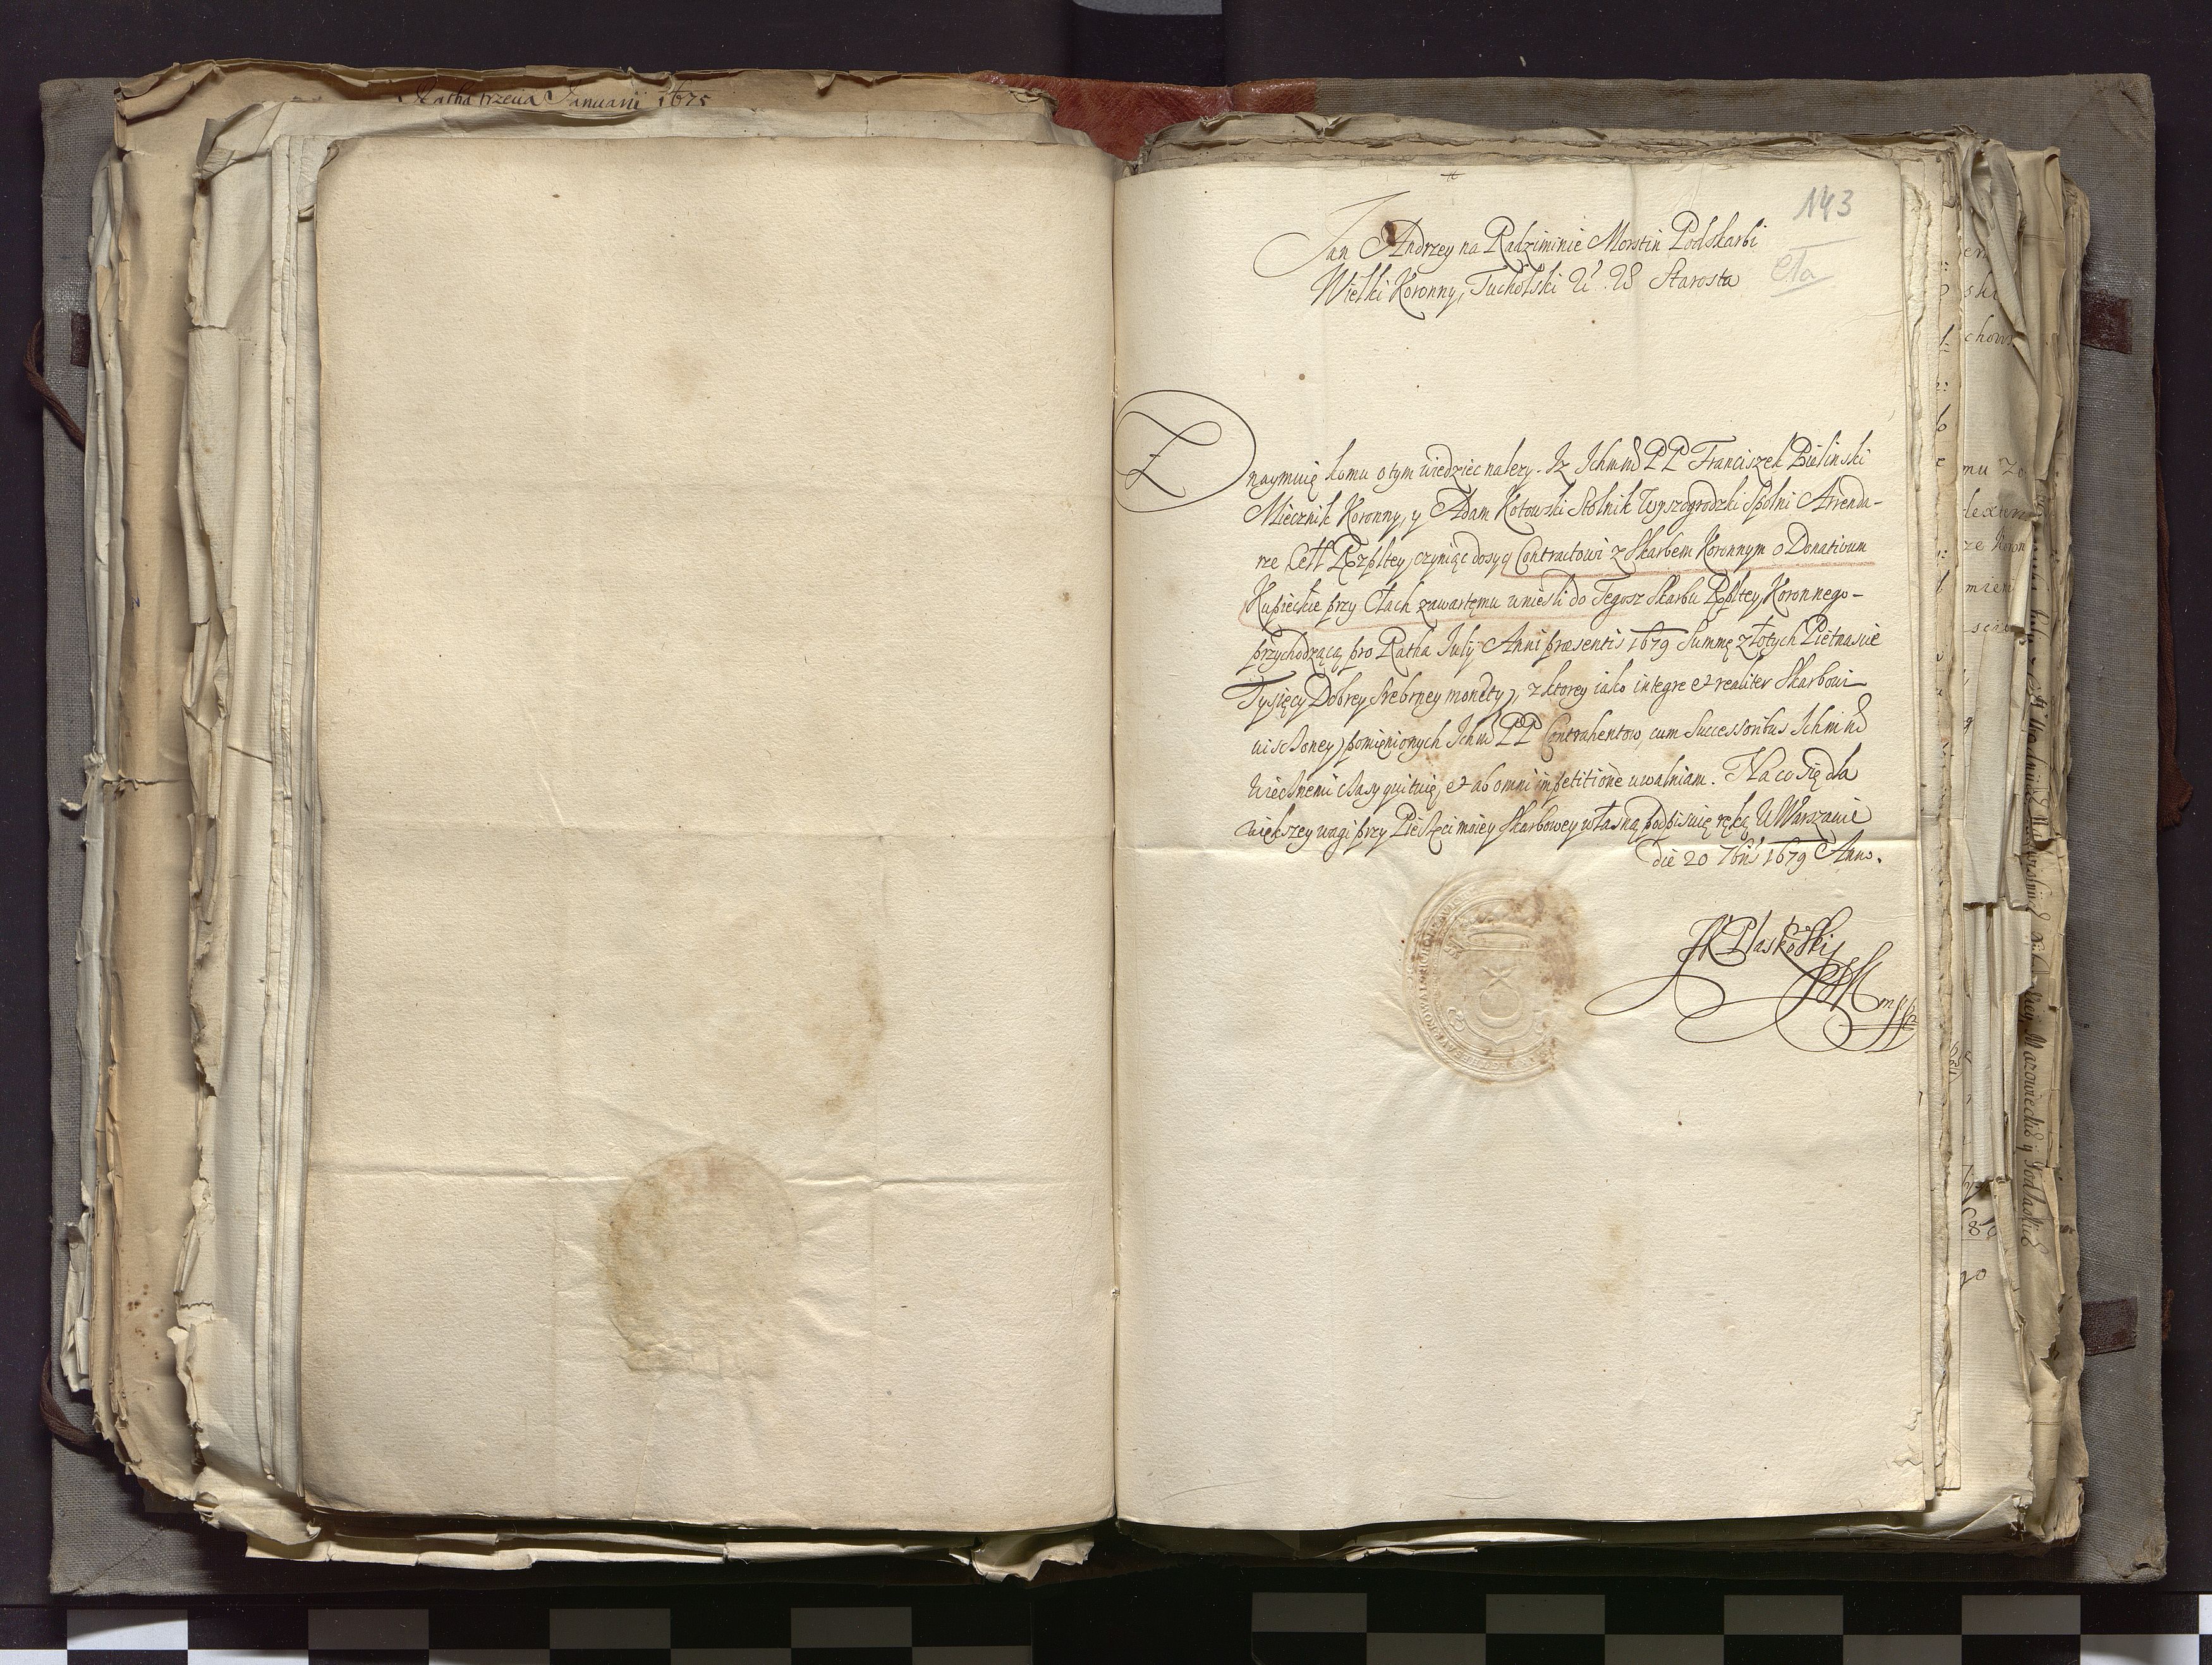 Ratha trzecia Januarii 1675
143
Cła
Jan Andrzey na Radziminie Morstin Podskarbi
Wielki Koronny, Tucholski &c. &c. Starosta
Znaymuię komu o tym wiedziec nalezy. Iz Ichmć PP Franciszek Bielinski
Miecznik Koronny, y Adam Kotowski Stolnik Wyszogrodzki spolni Arrenda-
rze Cełł Rzpltey, czyniąc dosyc Contractowi z Skarbem Koronnym o Donativum
Kupieckie przy Cłach zawartemu wniesli do Tegosz Skarbu Rzpltey Koronnego-
przychodzącą pro Ratha July Anni præsentis 1679 Summę złotych Piętnascie
Tysięcy Dobrey srebrney monety, z ktorey iako integre et realiter Skarbowi
uisczoney, pomienionych Ichmć PP Contrahentow, cum Successoribus Ichmć
wiecznemi czasy quituię, et ab omni impetitione uwalniam. Na co się dla
większey wagi przy Pieczęci moiey Skarbowey własną podpisuię ręką. W Warszawie
die 20 7bris 1679 Anno.
JK Płaskowski
PSK mpp